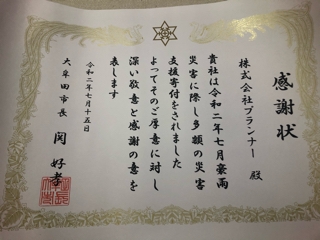 感謝状
株式会社プランナー 殿
貴社は令和二年七月豪雨
災害に際し多額の災害
支援寄付をされました
よってそのご厚意に対し
深い敬意と感謝の意を
表します
令和二年七月十五日
大牟田市長 関 好孝